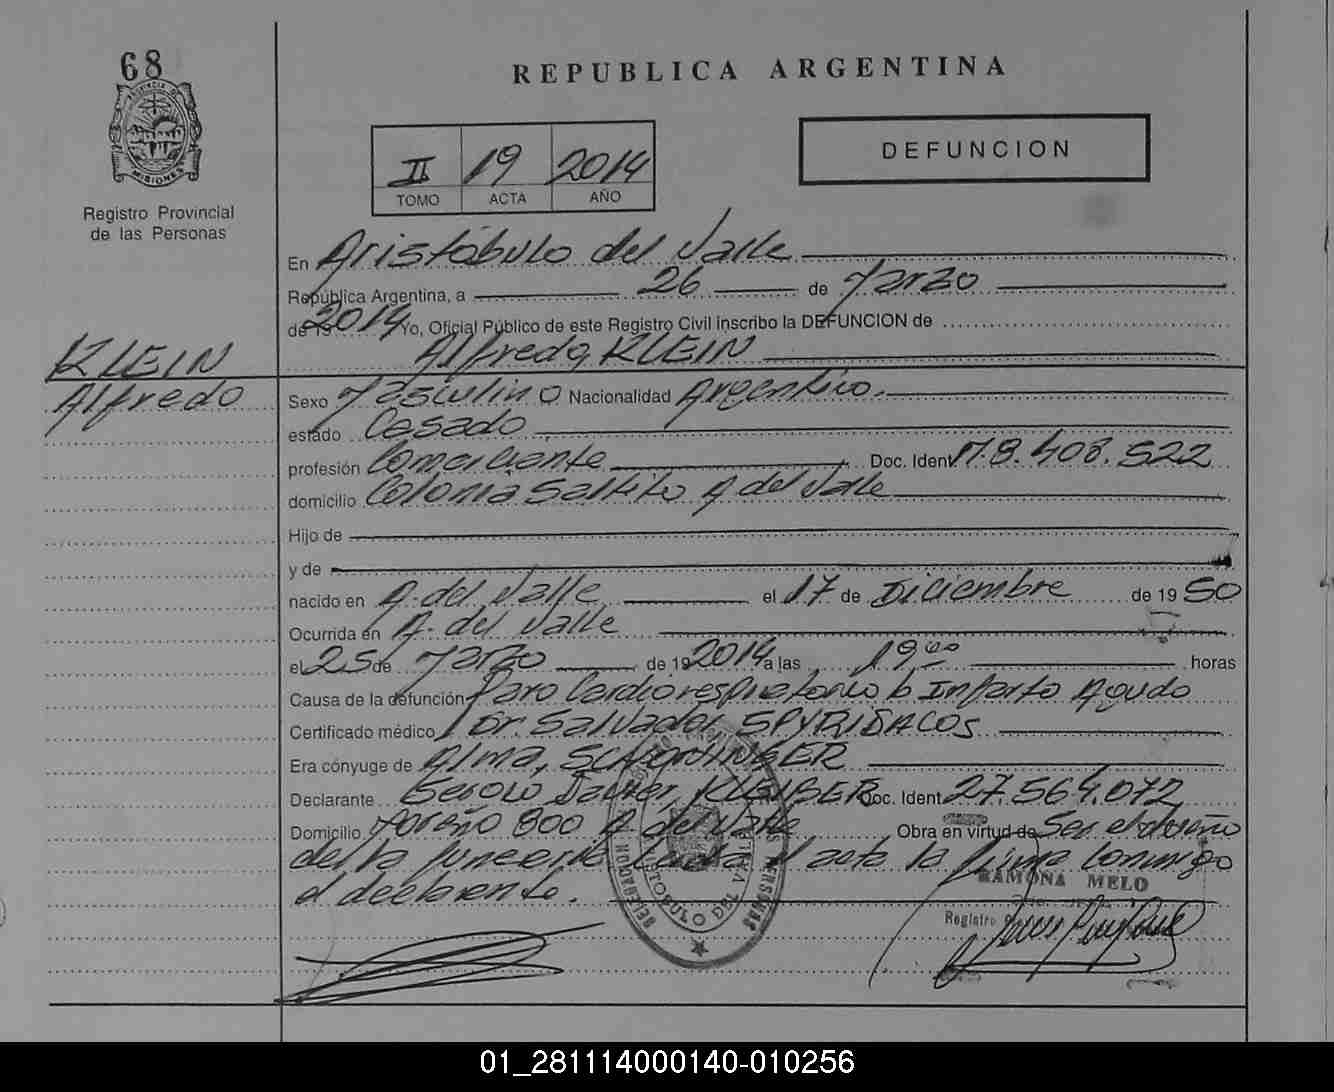 68
PROVINCIA DE
MISIONES
Registro Provincial
de las Personas
REPUBLICA ARGENTINA
DEFUNCION
II 19 2014
TOMO ACTA AÑO
En Aristóbulo del Valle
República Argentina, a 26 de Marzo
de 19 2014 Yo, Oficial Público de este Registro Civil inscribo la DEFUNCION de
Alfredo, KLEIN
KLEIN
Alfredo
Sexo Masculino Nacionalidad Argentino.
estado Casado
profesión Comerciante Doc. Ident M.8.408.522
domicilio Colonia Saltito A del Valle
Hijo de
y de
nacido en A. del Valle el 17 de Diciembre de 19 50
Ocurrida en A. del Valle
el 25 de Marzo de 19 2014 a las 19 horas
Causa de la defunción Paro Cardiorespiratorio b Infarto Agudo
Certificado médico Dr. Salvador SPYRIDACOS
Era cónyuge de Alma,
Declarante Javier, Doc. Ident 27.564.072
Domicilio 800 A del Valle Obra en virtud de Ser el dueño
de la funeraria el acta la firma conmigo
el declarante.
DELEGACION PERSONAS
ARISTOBULO DEL VALLE
RAMONA MELO
Registro
01_281114000140-010256